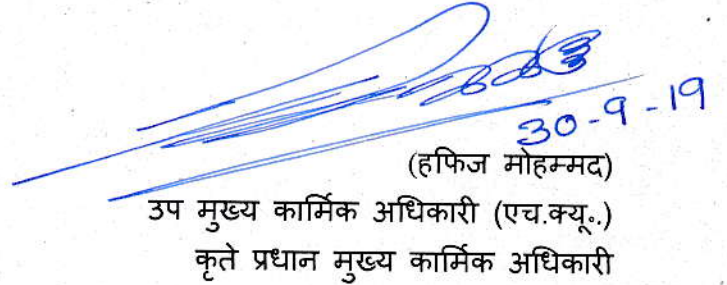 30-9-19
(हफिज मोहम्मद)
उप मुख्य कार्मिक अधिकारी (एच.क्यू..)
कृते प्रधान मुख्य कार्मिक अधिकारी